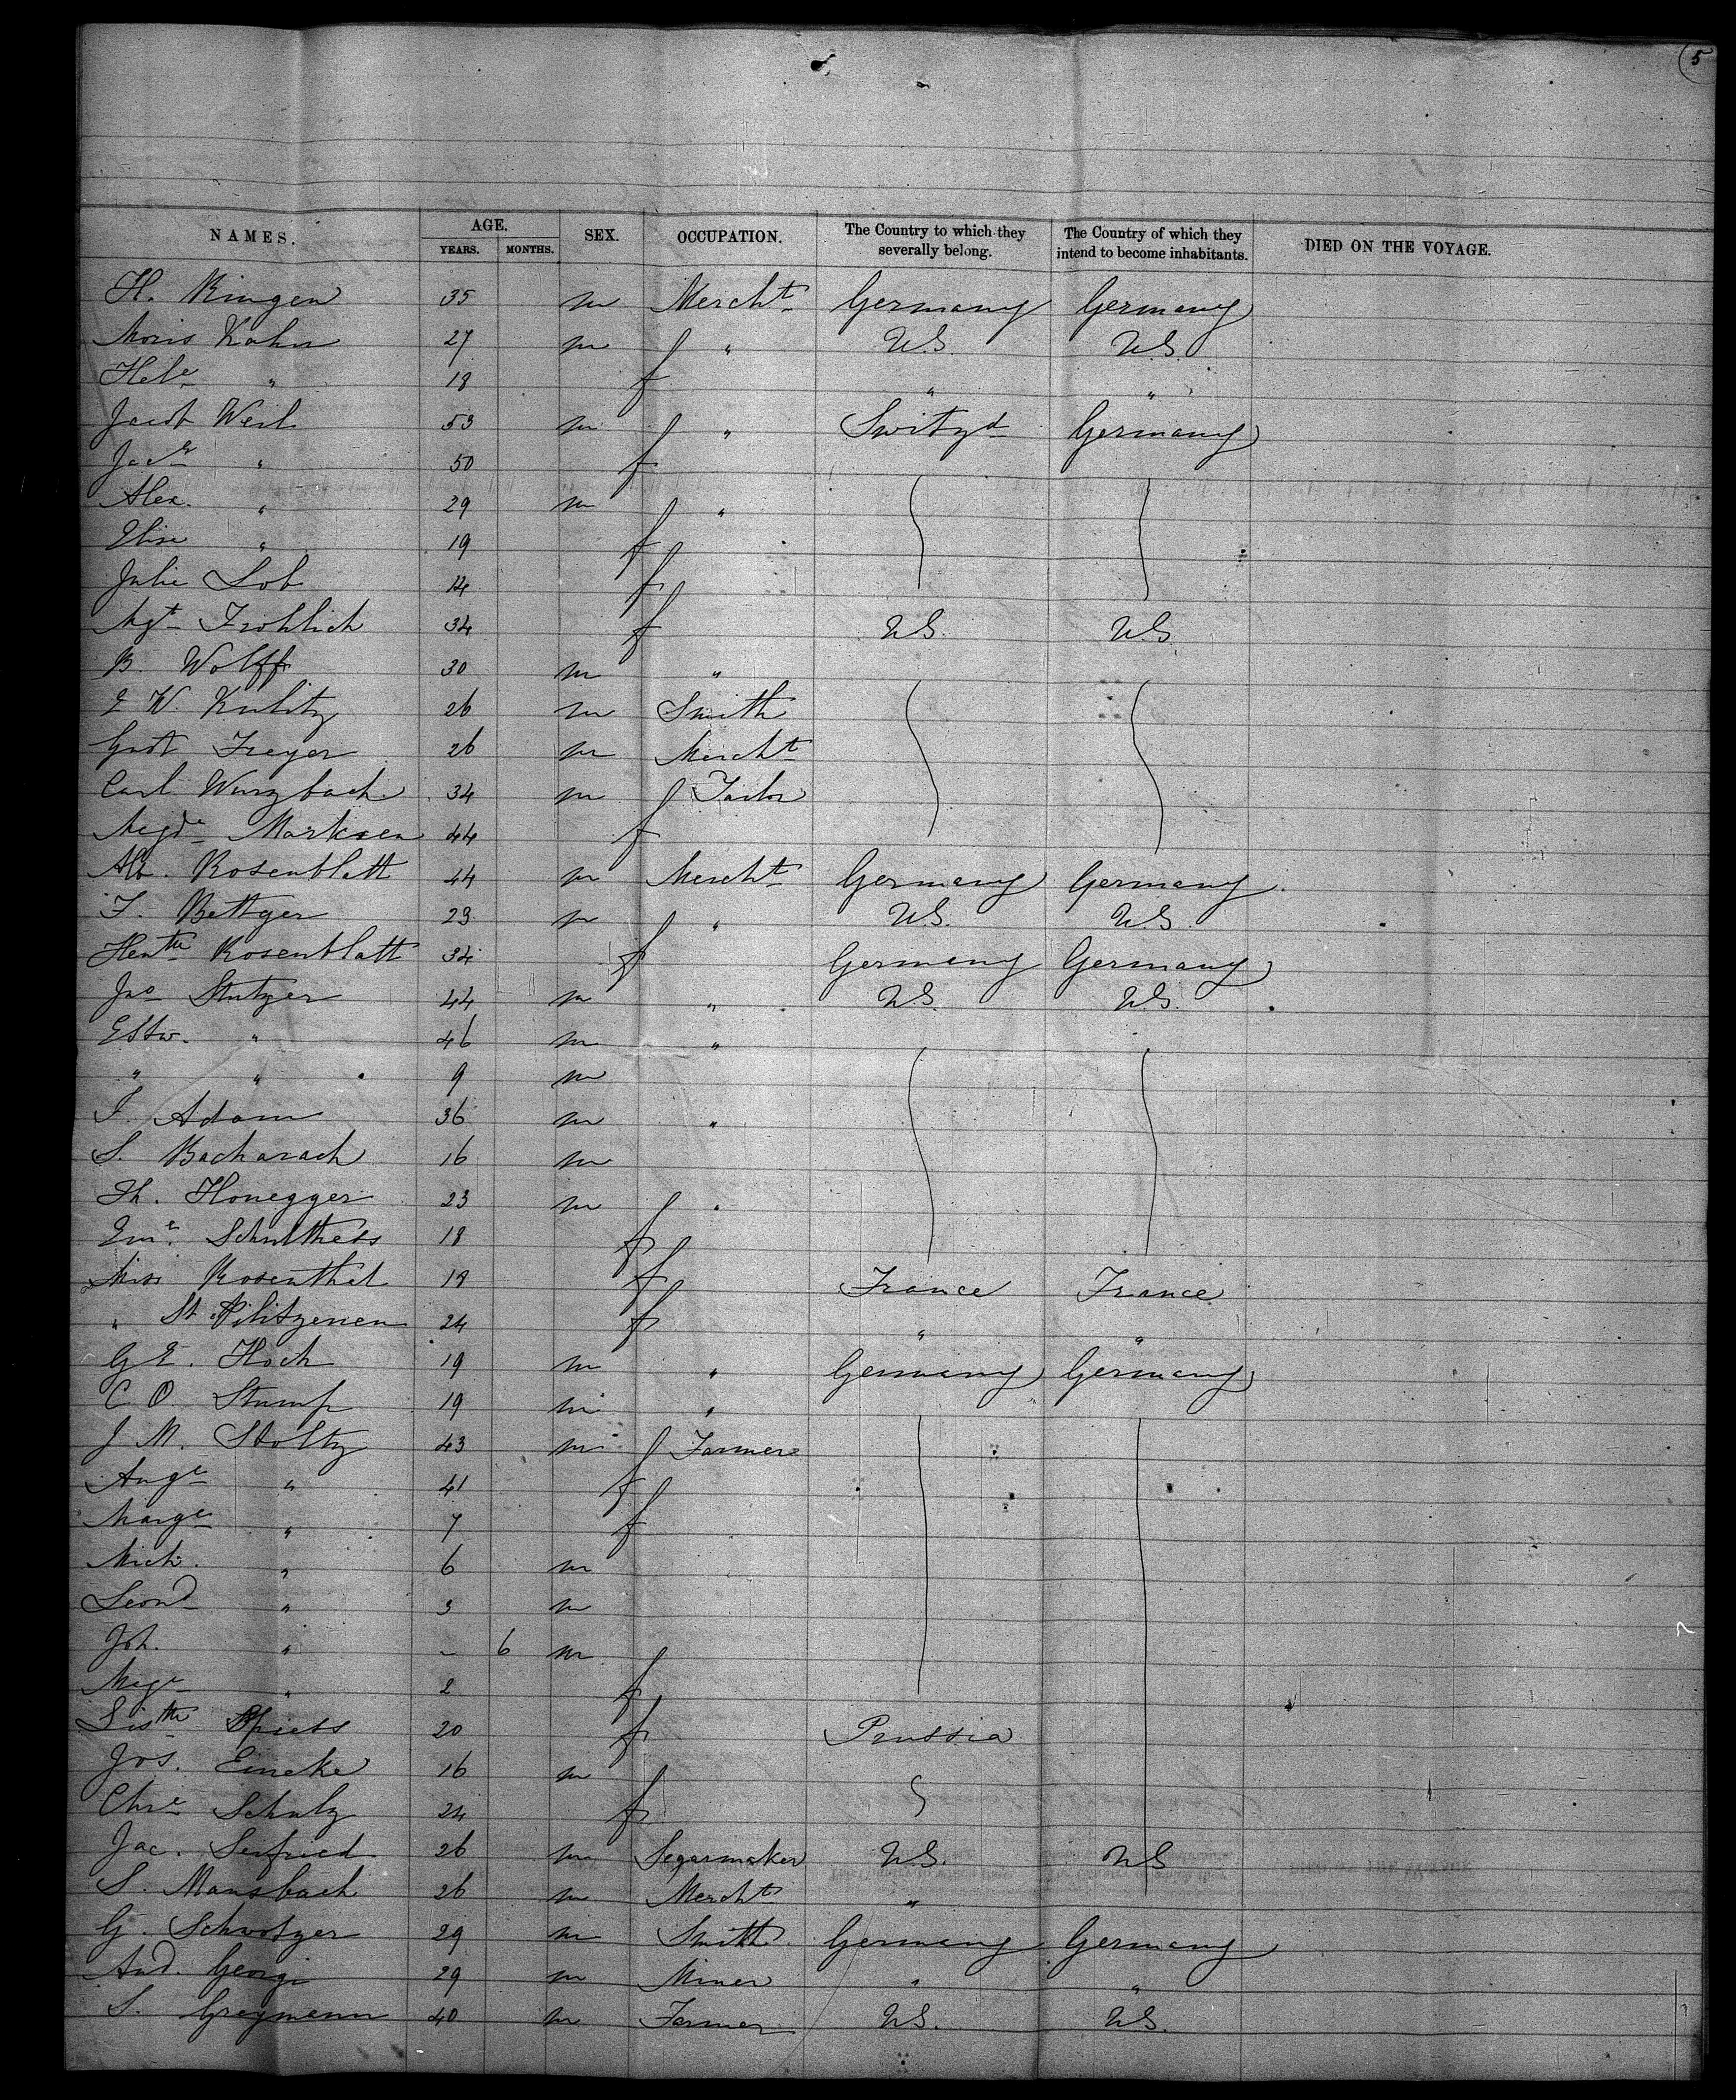 5
NAMES. AGE. SEX. OCCUPATION. The Country to which they severally belong. The Country of which they intend to become inhabitants. DIED ON THE VOYAGE.
YEARS. MONTHS.
H. Ringen 35 m Mercht Germany Germany
Moris Kahn 27 m " U.S. U.S.
Hele " 18 f " "
Jacob Weil 53 m " Switzd Germany
" 50 f
Alex. " 29 m "
Elise " 19 f
Julie Lob 14 f
Agt Frohlich 34 f U.S. U.S.
B. Wolff 30 m "
E W. Kulitz 26 m Smith
Gust Freyer 26 m Mercht
Carl Wurzbach 34 m Tailor
Marksen 44 f
Ab. Rosenblatt 44 m Mercht Germany Germany
F. Bettger 23 m " U.S. U.S.
Hentte Rosenblatt 34 f Germany Germany
Jno Stutzer 44 m " U.S. U.S.
" 46 m "
" " 9 m
F. Adam 36 m "
S. Bacharach 16 m
Th. Honegger 23 m "
Eme. Schulthess 18 f
Miss Rosenthal 18 f France France
" St. 24 f " "
G E. Hoch 19 m " Germany Germany
C O. Stumpf 19 m "
J M. Stoltz 43 m Farmer
Auge " 41 f
Marge " 7 f
Mich. " 6 m
Leond " 3 m
Joh. " - 6 m
Mage " 2 f
Listte Spiess 20 f Prussia
Jos. Eineke 16 m
Chre Schulz 24 f
Jac. Seifried 26 m Segarmaker U.S. U.S
S. Mansbach 26 m Mercht "
G. Schvotzer 29 m Smith Germany Germany
And. Georgi 29 m Miner " "
S. Greymann 40 m Farmer U.S. U.S.